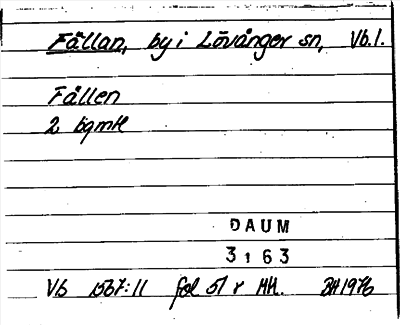 Fällan, by i Lövånger sn, Vb.l.
Fällen
2 bgmtl
DAUM
3163
Vb 1567:11 fol 51 r HH. BH 1976